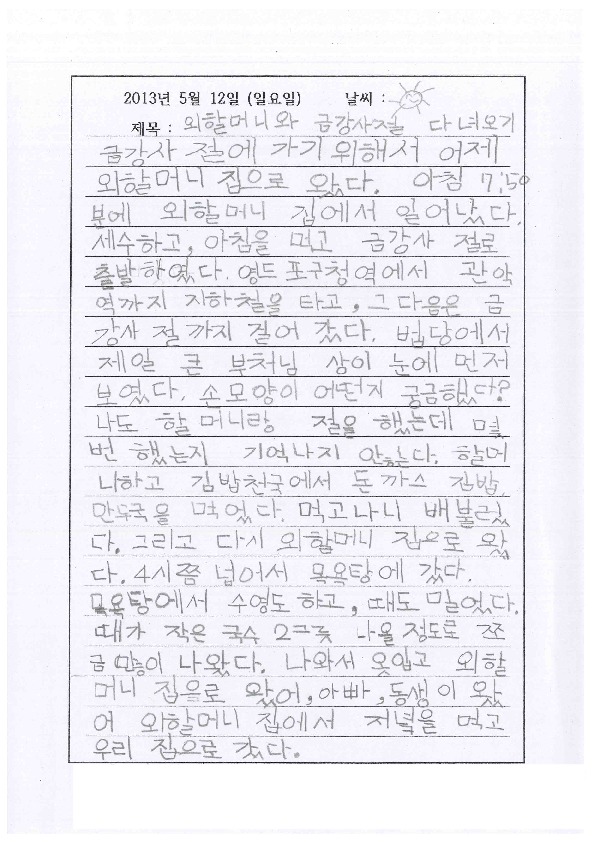 2013년 5월 12일 (일요일) 날씨 :
제목 : 외할머니와 금강사절 다녀오기
금강사 절에 가기 위해서 어제
외할머니 집으로 왔다. 아침 7:50
분에 외할머니 집에서 일어났다.
세수하고, 아침을 먹고 금강사 절로
출발하였다. 영드포구청역에서 관악
역까지 지하철을 타고, 그 다음은 금
강사 절까지 걸어 갔다. 법당에서
제일 큰 부처님 상이 눈에 먼저
보였다. 손모양이 어떤지 궁금했다?
나도 할머니랑 절을 했는데 몇
번 했는지 기억나지 않는다. 할머
니하고 김밥천국에서 돈까스 김밥,
만두국을 먹었다. 먹고나니 배불렀
다. 그리고 다시 외할머니 집으로 왔
다. 4시쯤 넘어서 목욕탕에 갔다.
목욕탕에서 수영도 하고, 때도 밀었다.
때가 작은 국수 2그릇 나올 정도로 쪼
금 많이 나왔다. 나와서 옷입고 외할
머니 집을로 왔어, 아빠, 동생이 왔
어 외할머니 집에서 저녁을 먹고
우리 집으로 갔다.